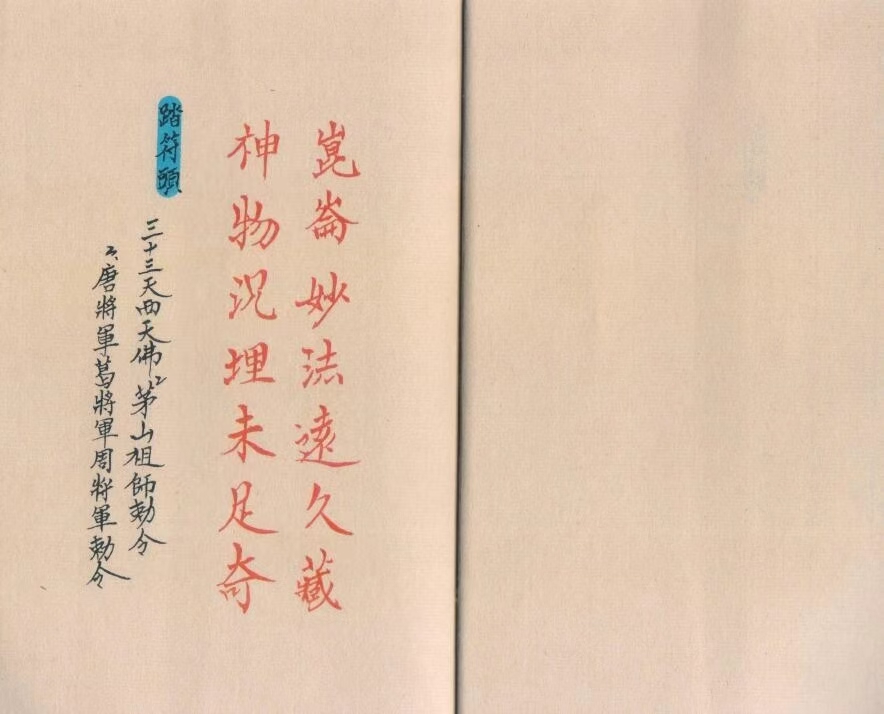 崑崙妙法遠久藏
神物沉埋未足奇
踏符頭
三十三天西天佛〻茅山祖師勅令
〻唐將軍葛將軍周將軍勅令